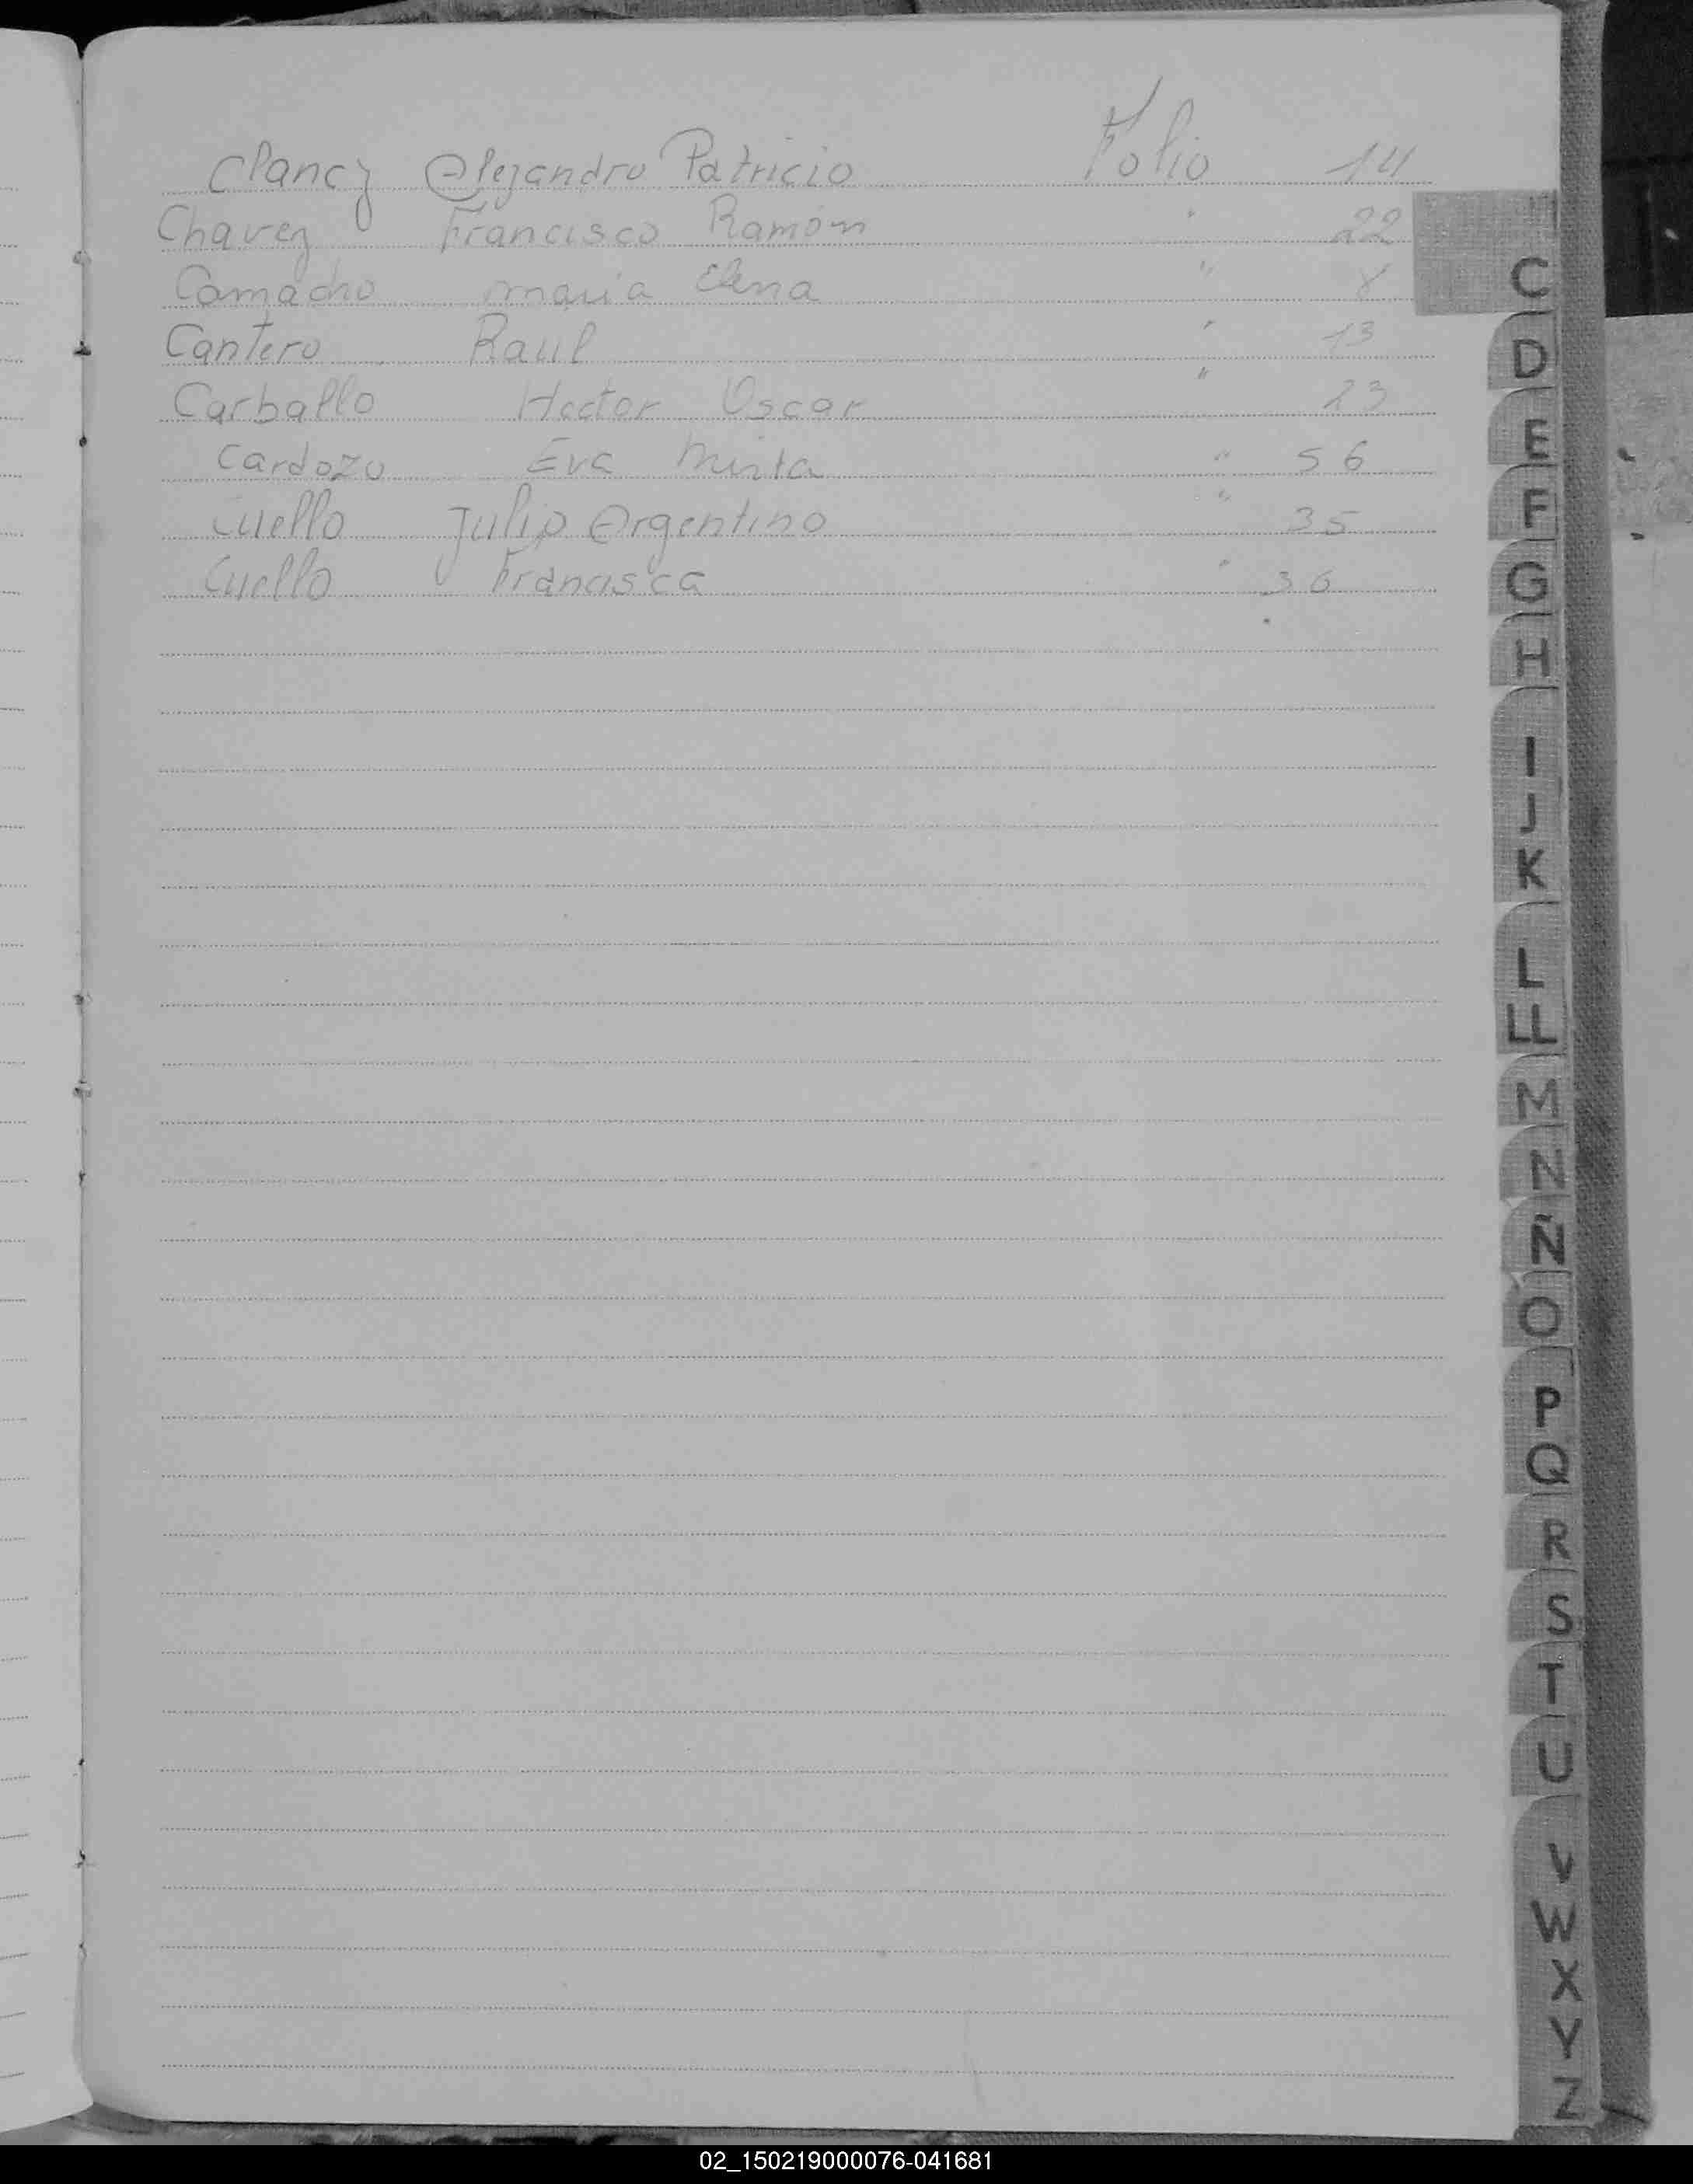 Clancy Alejandro Patricio Folio 14
Chavez Francisco Ramón " 22
Camacho maria Elena " 8
Cantero Raul " 13
Carballo Hector Oscar " 23
Cardozo Eva Mirta " 56
Cuello Julio Argentino " 35
Cuello Francisca " 36
C
D
E
F
G
H
I
J
K
L
LL
M
N
Ñ
O
P
Q
R
S
T
U
V
W
X
Y
Z
02_150219000076-041681